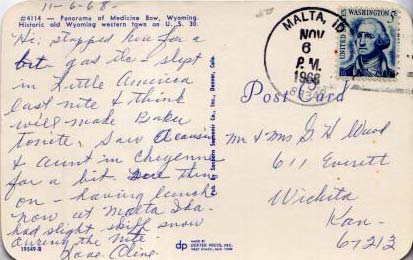 11-6-68-
#4114 - Panorama of Medicine Bow, Wyoming.
Historic old Wyoming western town on U. S. 30.
Hi, stopped here for a
bit gas etc - slept
in Little America
last nite & think
will make Baker
tonite, Saw a cousin
& Aunt in Cheyenne
for a bit then
on - having lunch
now at Malta Ida
had slight skiff snow
during the nite
Love
19549-B
MADE BY
DEXTER PRESS, INC.
WEST NYACK, NEW YORK
dp
MALTA, ID
NOV
6
P.M.
1968
83342
U.S. POSTAGE
WASHINGTON
5c
UNITED STATES
Post Card
Mr & Mrs G H Wood
611 Everett
Wichita
Kan-
67213